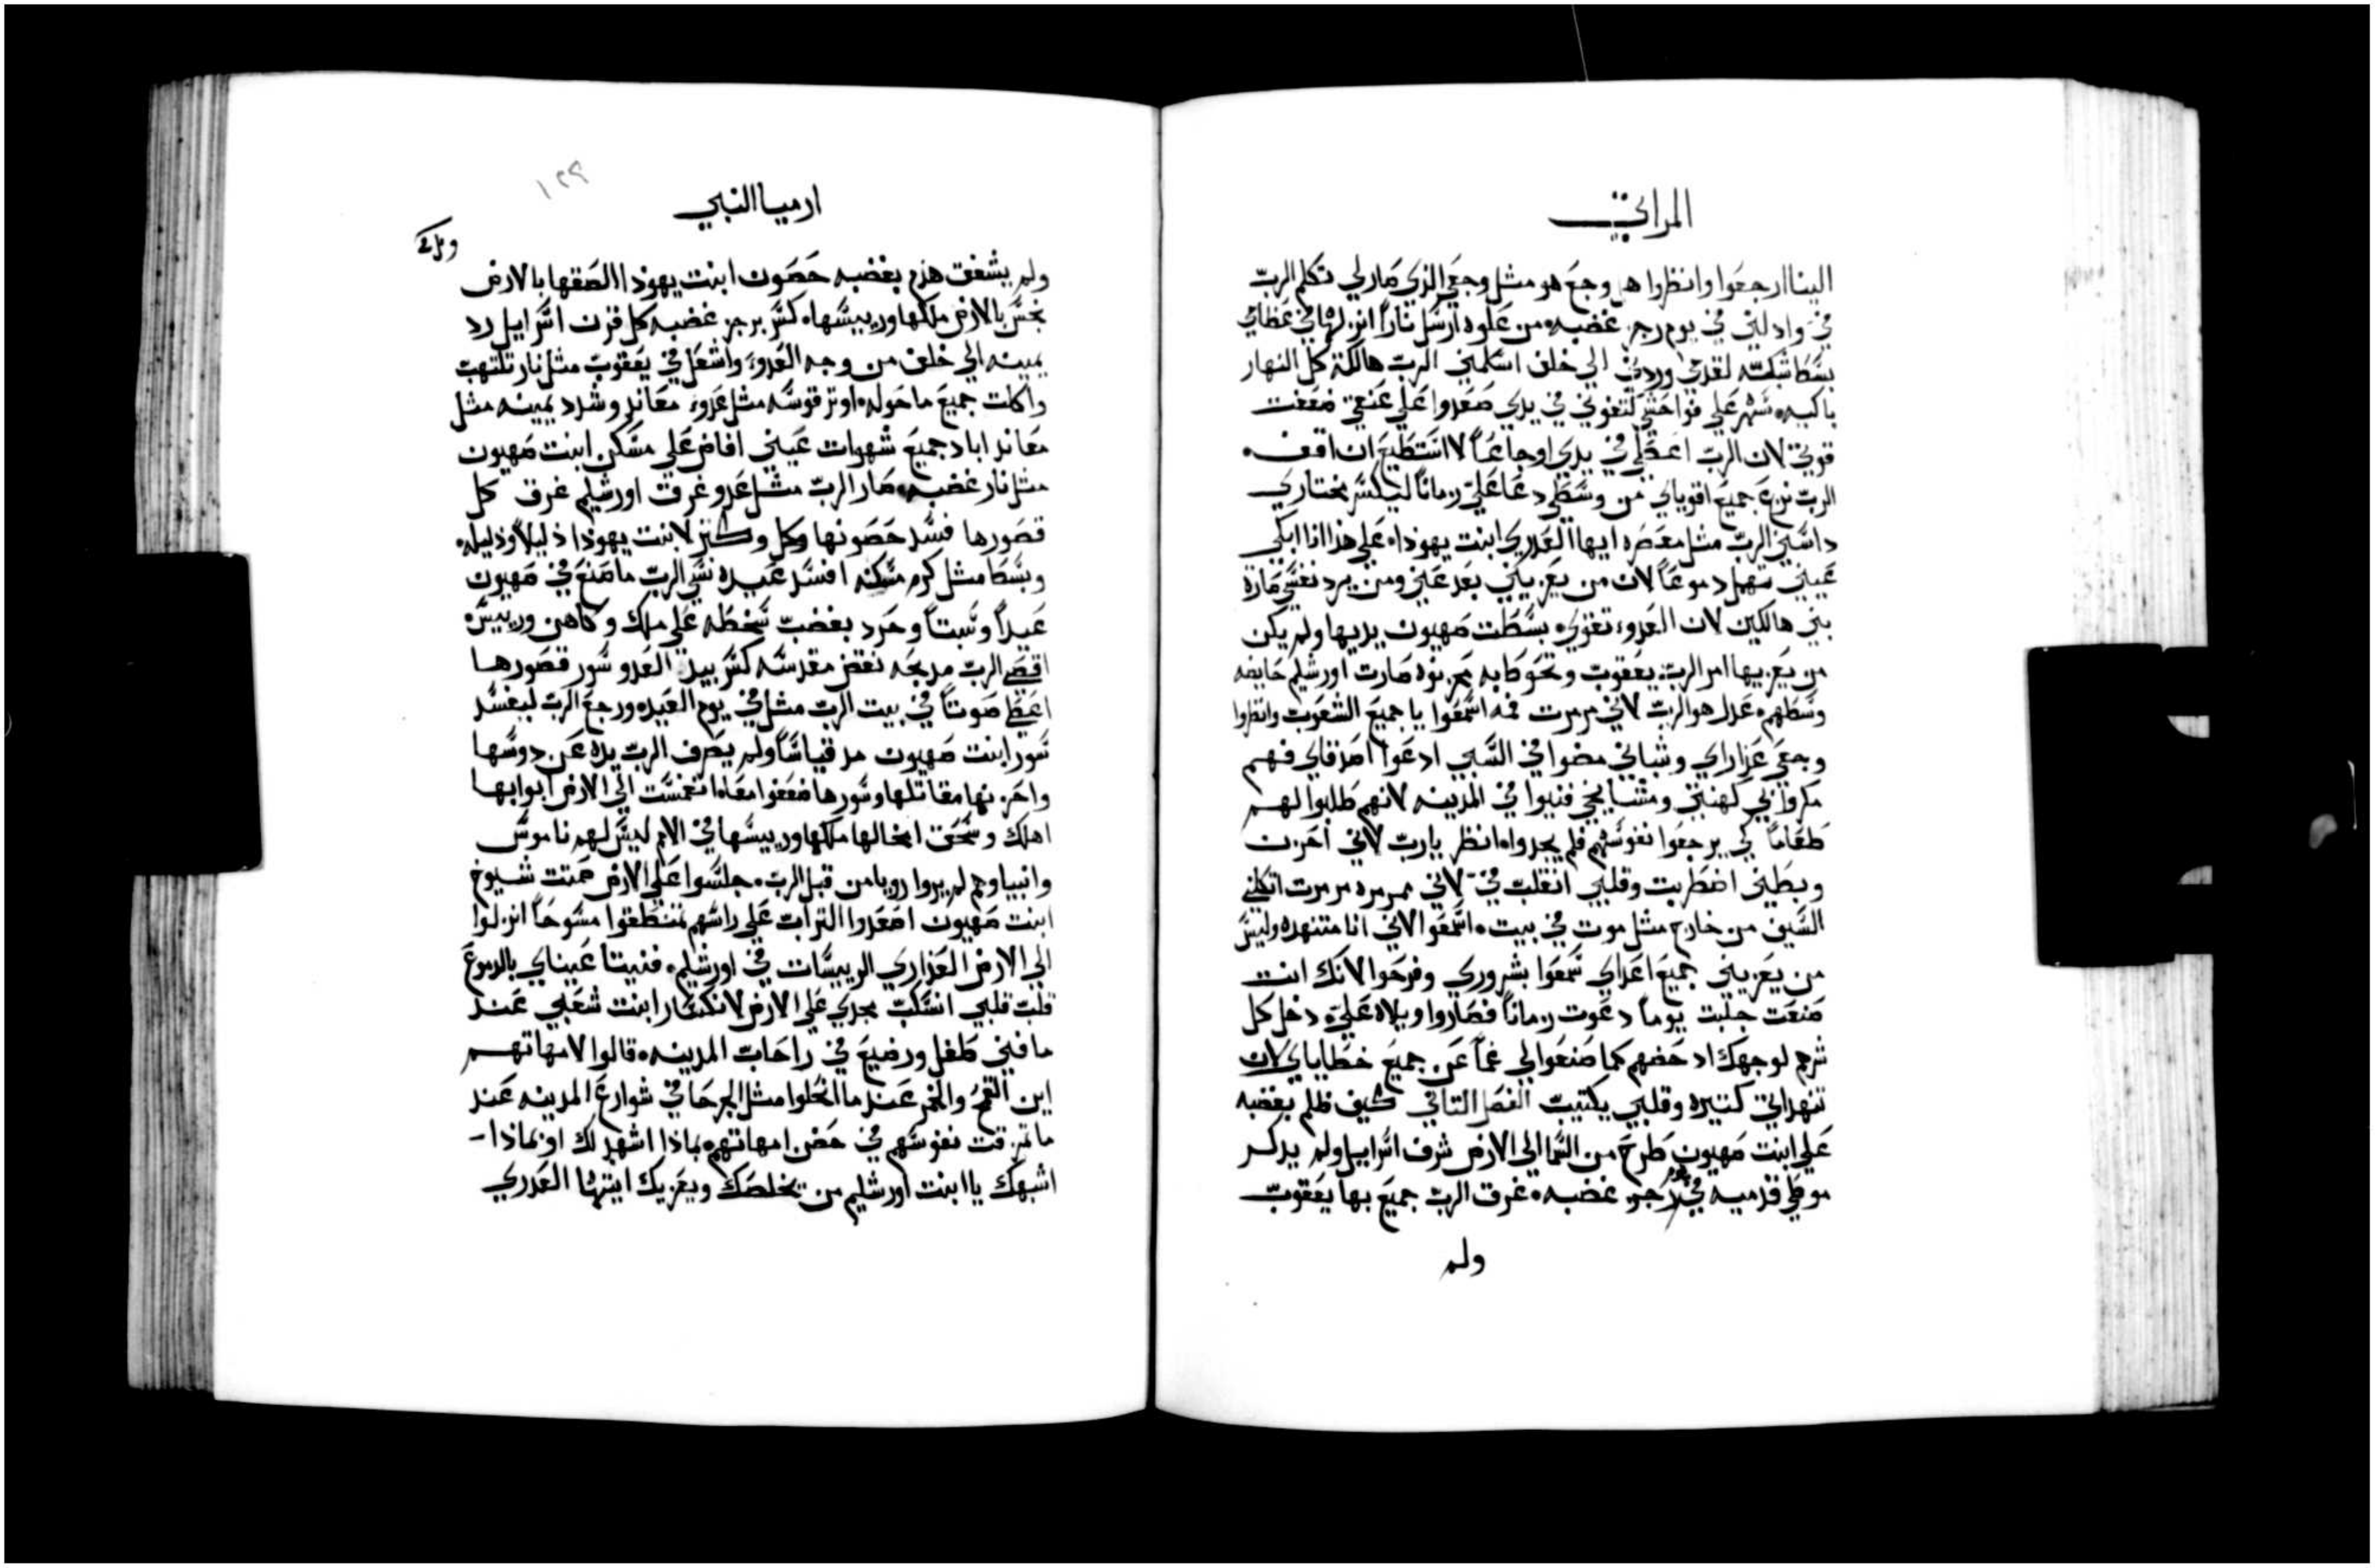 المراثي
الينا ارجعوا وانظروا هل وجع هو مثل وجعي الذي صار لي تكلم الرب
في وادلني في يوم رجز غضبه من علوه ارسل ناراً انزلها في عظامي
بسط شبكته لقدمي وردني الي خلف اسلمني الرب هالكة كل النهار
باكيه سهر علي فواحشي لتغوني في يدي صعدوا علي عنقي ضعفت
قوتي لان الرب اعطي في يدي اوجاعاً لا استطيع ان اقف
الرب نزع جميع اقويائي من وسطي دعا علي زماناً ليكسر مختاري
داسني الرب مثل معصره ايها العدري ابنت يهودا علي هذا انا ابكي
عيني تهمل دموعاً لان من يعزيني بعد عني ومن يرد نفسي صارة
بني هالكين لان العدو تقوي بسطت صهيون يديها ولم يكن
من يعزيها امر الرب يعقوب وتحوط به محزنوه صارت اورشليم حايضه
وسطهم عدل هو الرب لاني مرمرت فمه اسمعوا يا جميع الشعوب وانظروا
وجعي عذاراي وشباني مضوا في السبي ادعوا اصدقاي فهم
مكروا بي كهنتي ومشايخي فنيوا في المدينه لانهم طلبوا لهم
طعاماً كي يرجعوا نفوسهم فلم يجدوا انظر يارب لاني احزن
وبطني اضطربت وقلبي انقلب في لاني ممرمره مرمرت اتكلني
السيف من خارج مثل موت في بيت اسمعوا لاني انا متنهده وليس
من يعزيني جميع اعداي سمعوا بشروري وفرحوا لانك انت
صنعت جلبت يوماً دعوت زماناً فصاروا ويلاه علي دخل كل
شرهم لوجهك ادحضهم كما صنعوا لي غماً عن جميع خطاياي لان
تنهداتي كتيره وقلبي يكتيب الفصل التاني كيف ظلم بغضبه
علي ابنت صهيون طرح من السما الي الارض شرف اسرايل ولم يدكر
موطي قدميه في يوم رجز غضبه غرق الرب جميع بها يعقوب
ولم
١٢٩
ارميا النبي
ولم يشفق هدم بغضبه حصون ابنت يهودا الصقها بالارض
نجس بالارض ملكها ورييسها كسر برجز غضبه كل قرن اسرايل رد
يمينه الي خلف من وجه العدو واشعل في يعقوب مثل نار تلتهب
واكلت جميع ما حوله اوتر قوسه مثل عدو معاند وشدد يمينه مثل
معاند اباد جميع شهوات عيني افاض علي مسكن ابنت صهيون
مثل نار غضبه صار الرب مثل عدو غرق اورشليم غرق كل
قصورها فسد حصونها وكل وكتر لابنت يهودا ذليلاً وذليله
وبسط مثل كرم مسكنه افسد عيده نسي الرب ما صنع في صهيون
عيداً وسبتاً وحرد بغضب سخطه علي ملك وكاهن ورييس
اقصي الرب مدبحه نفض مقدسه كسر بيد العدو سور قصورها
اعطي صوتاً في بيت الرب مثل في يوم العيد ورجع الرب ليفسد
سور ابنت صهيون مد قياساً ولم يصرف الرب يده عن دوسها
واحزنها مقاتلها وسورها ضعفوا معاً انغمست الي الارض ابوابها
اهلك وسحق امخالها ملكها ورييسها في الامم ليس لهم ناموس
وانبياوهم لم يروا رويا من قبل الرب جلسوا علي الارض صمتت شيوخ
ابنت صهيون اصعدوا التراب علي راسهم تمنطقوا مسوحاً انزلوا
الي الارض العذاري الرييسات في اورشليم فنيتا عيناي بالدموع
قلب قلبي انسكب مجدي علي الارض لانكسار ابنت شعبي عند
ما فني طفل ورضيع في راحات المدينه قالوا لامهاتهم
اين القمح والخمر عند ما انحلوا مثل الجرحا في شوارع المدينه عند
ما تمزقت نفوسهم في حضن امهاتهم بماذا اشهد لك او بماذا
اشبهك يا ابنت اورشليم من يخلصك ويعزيك ايتها العدري